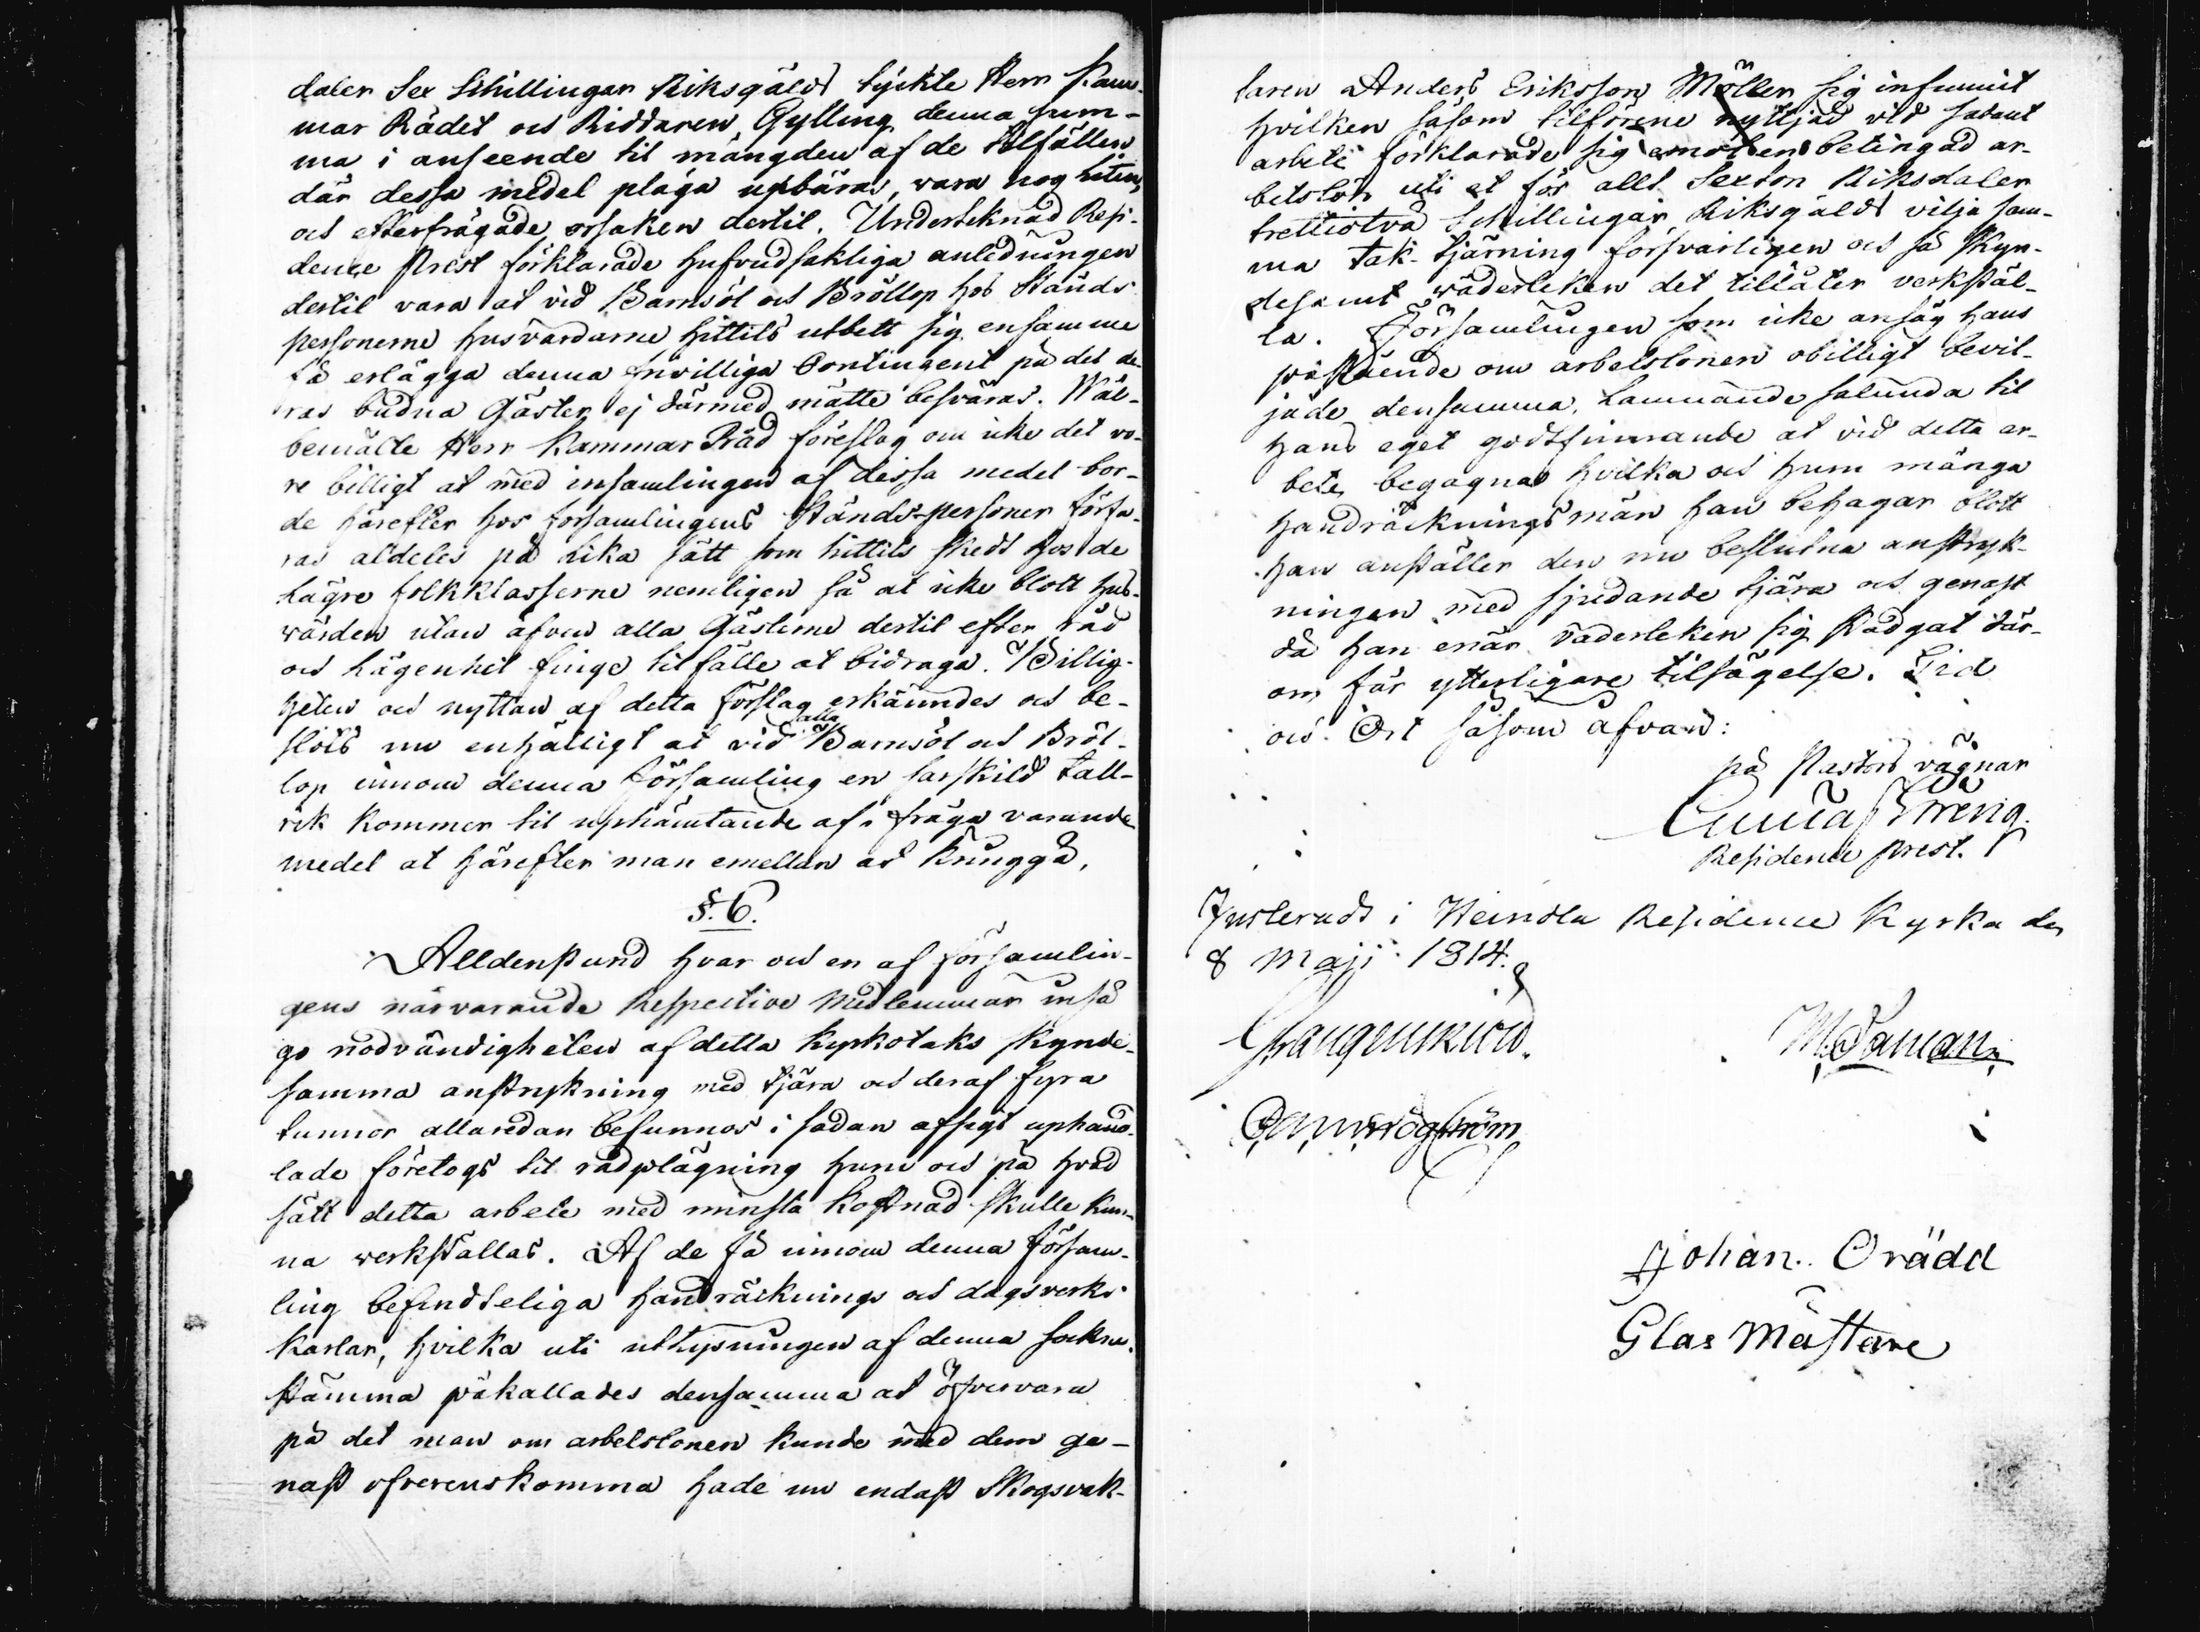 daler Sex Schillingar Riksgälds tyckte Herr Kam-
mar Rådet och Riddaren Gylling denna sum-
ma i anseende til mängden af de Tilfällen
där dessa medel pläga upbäras, vara nog liten,
och efterfrågade orsaken dertil. Undertecknad Resi-
dence Prest förklarade hufvudsakliga anledningen
dertil vara at vid Barnsöl och Bröllop hos Stånds
personerne husvärdarne hittils utbett sig ensamme
få erlägga denna frivilliga Contingent på det de-
ras budna Gäster ej därmed måtte besväras. Wäl-
bemälte Herr Kammar Råd föreslog om icke det vo-
re billigt at med insamlingen af dessa medel bor-
de härefter hos församlingens Stånds-personer förfa-
ras aldeles på lika sätt som hittils skedt hos de
lägre folkklasserne nemligen så at icke blott hus-
värden utan äfven alla Gästerne dertil efter råd
och lägenhet finge tilfälle at bidraga. Billig-
heten och nyttan af detta förslag erkändes och be-
slöts nu enhälligt at vid alla Barnsöl och Bröl-
lop innom denna församling en särskild tall-
rik kommer til uphämtande af i fråga varande
medel at härefter man emellan at kringgå.
§. 6.
Alldenstund hvar och en af församlin-
gens närvarande Respective Medlemmar inså
go nödvändigheten af detta kyrkotaks skynde-
samma anstrykning med tjära och deraf fyra
tunnor allaredan befunnos i sådan afsigt uphand-
lade företogs til rådplägning huru och på hvad
sätt detta arbete med minsta kostnad skulle kun-
na verkställas. Af de få innom denna försam-
ling befindteliga handräcknings och dagsverks
karlar, hvilka uti utlysningen af denna sockne-
stämma påkallades densamma at öfvervara
på det man om arbetslönen kunde med dem ge-
nast öfverenskomma hade nu endast Skogsvak-
taren Anders Eriksson Möller sig infunnit
hvilken såsom tilförene nyttjad vid sådant
arbete förklarade sig emot en betingad ar-
betslön uti et för allt Sexton Riksdaler
trettiotva Schillingar Riksgälds vilja sam-
ma tak-tjärning försvarligen och så skyn-
desamt väderleken det tillåter verkstäl-
la. Församlingen som icke ansåg hans
påstående om arbetslönen obilligt bevil-
jade densamma, lämnande sålunda til
hans eget godtfinnande at vid detta ar-
bete begagna hvilka och huru många
handräcknings män han behagar blott
han anställer den nu beslutna anstryk-
ningen med sjudande tjära och genast
då han enär väderleken sig stadgat där-
om får ytterligare tilsägelse. Tid
och Ort såsom ofvan:
på Pastors vägnar
Residence Prest.
Justerads i Heinola Residence Kyrka den
8 Maji 1814.
Johan. Orädd
Glas Mästare